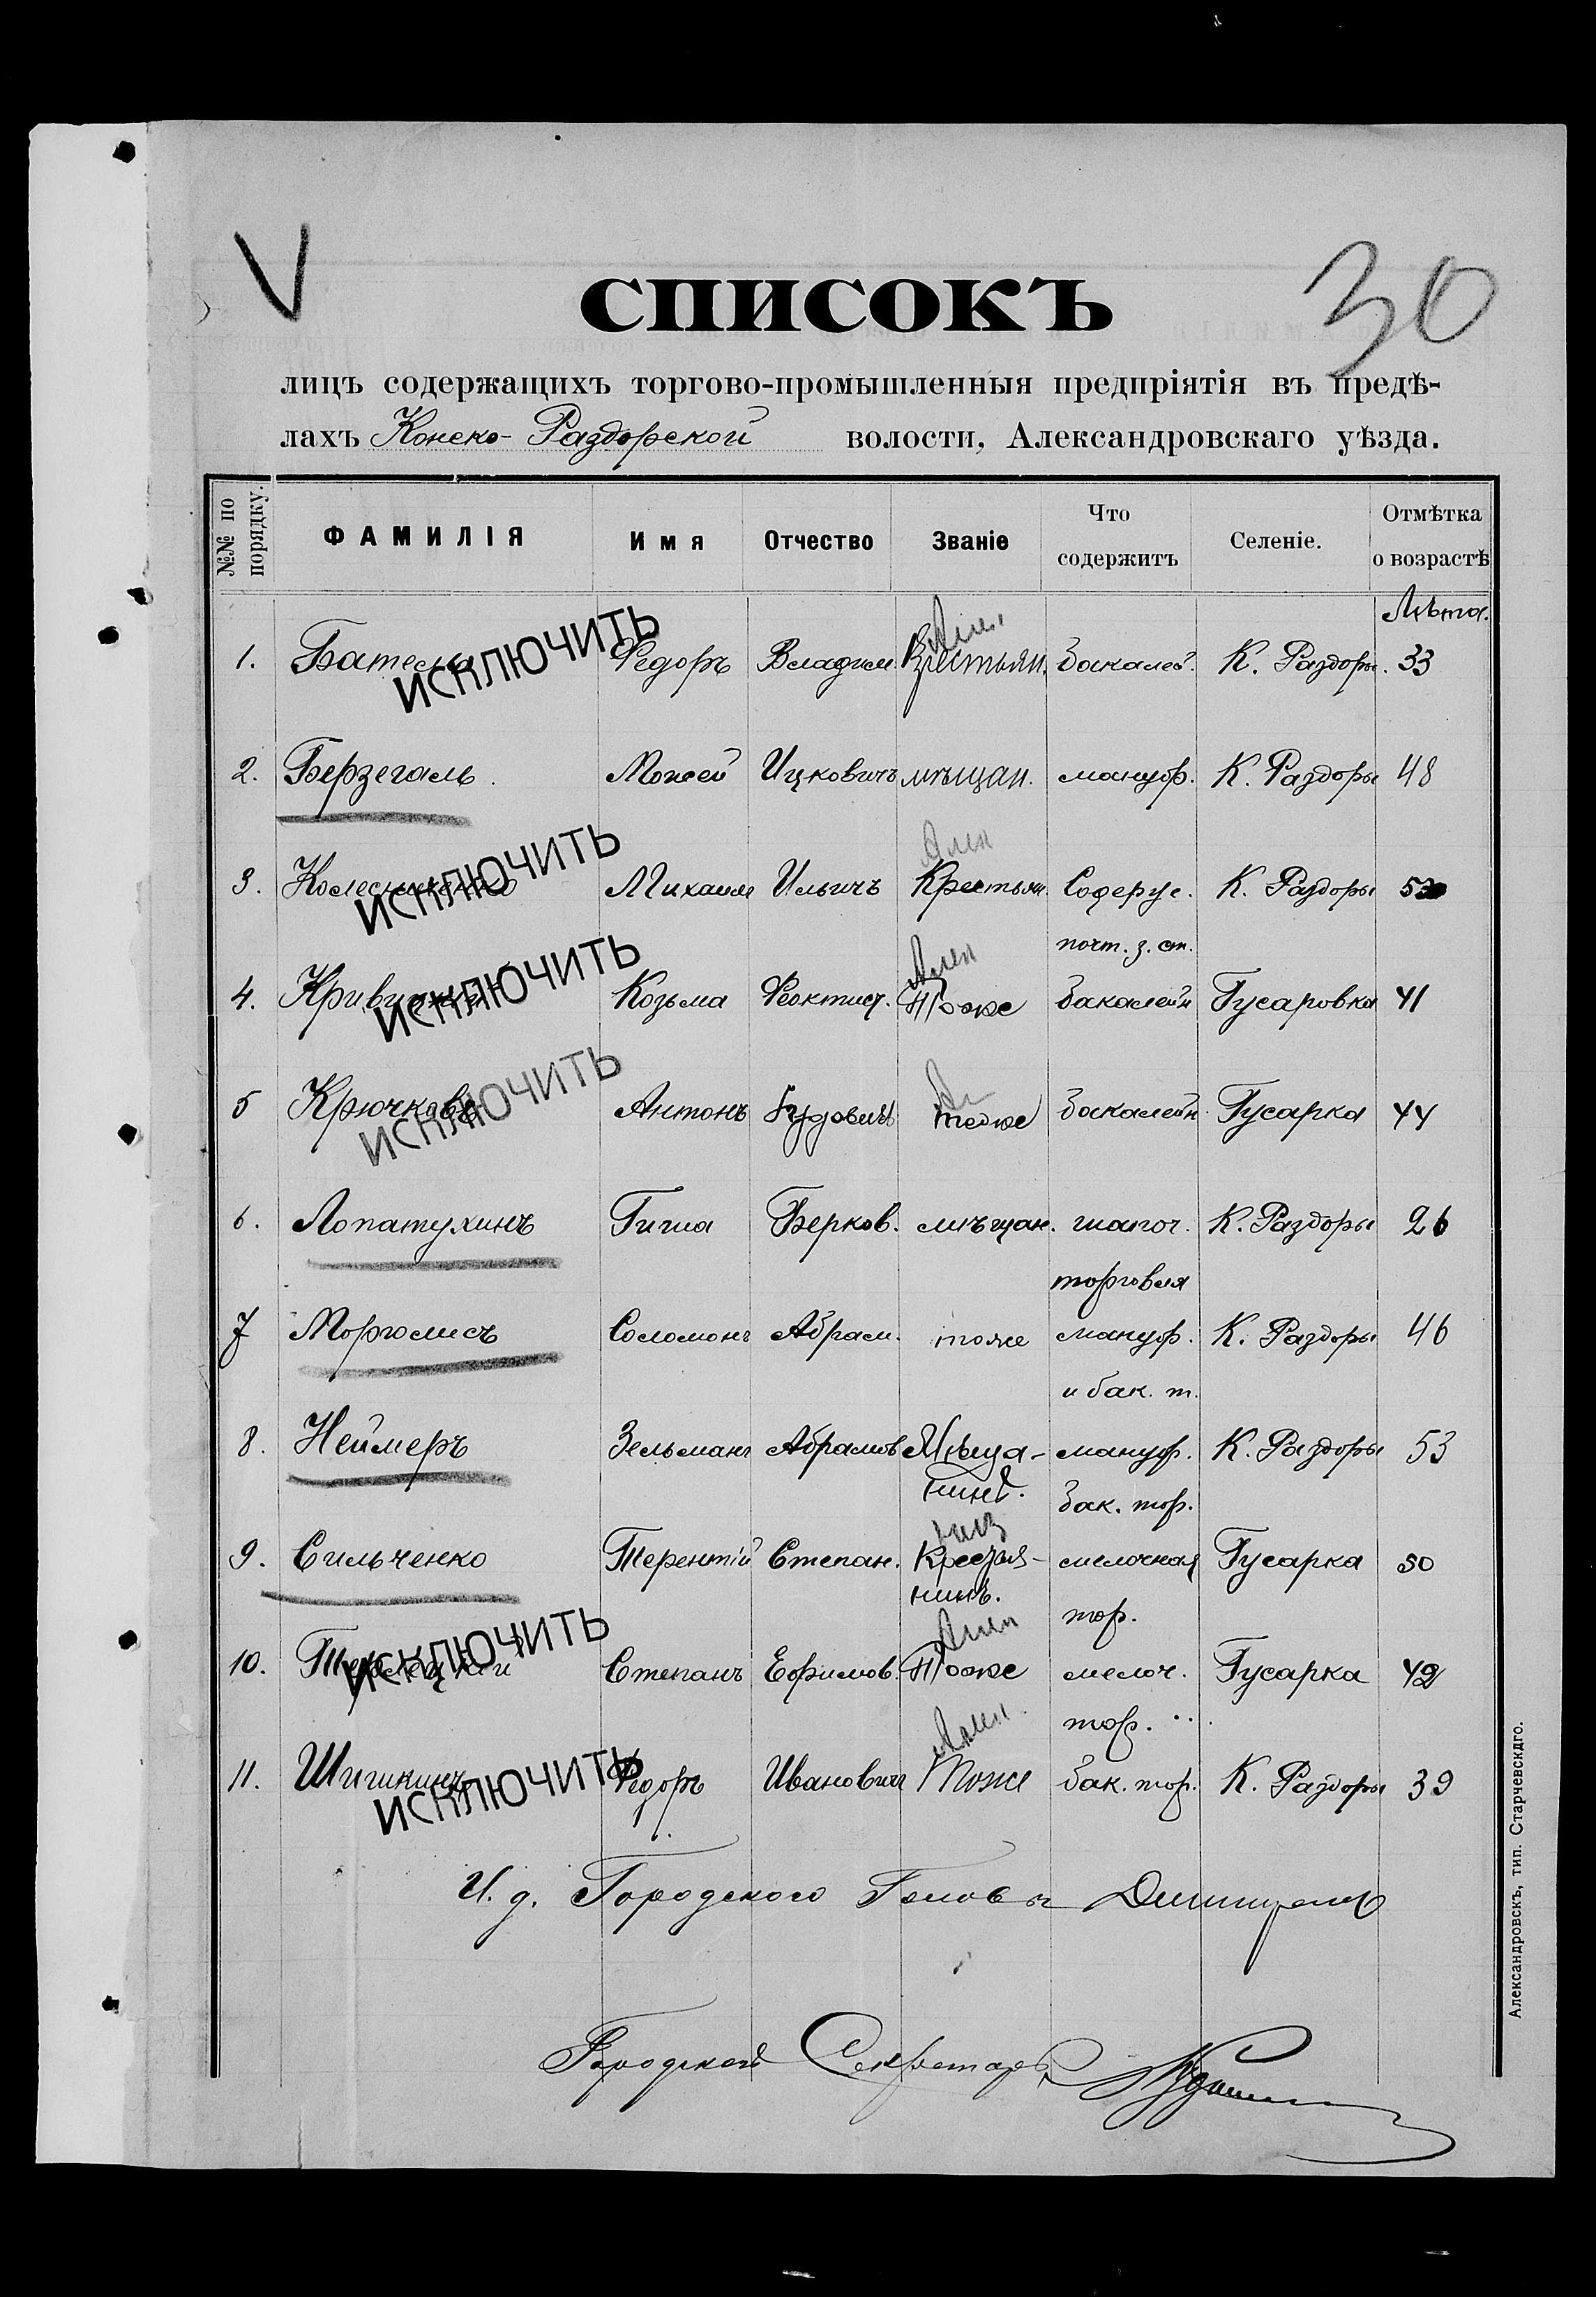 V
30
СПИСОКЪ
лицъ содержащихъ торгово-промышленныя предпріятія въ предѣ-
лахъ Конско-Раздорской волости, Александровскаго уѣзда.
№№ по порядку. ФАМИЛІЯ Имя Отчество Званіе Что содержитъ Селеніе. Отмѣтка о возрастѣ
Лѣта.
1. ИСКЛЮЧИТЬ Федоръ Владим. Крестьян. бакалей. К. Раздоры. 33
2. Берзегаль. Мовсей Ицковичъ мѣщан. мануф. К. Раздоры 48
Ален
3. Колесниченко ИСКЛЮЧИТЬ Михаилъ Ильичъ Крестьян. Содерж. К. Раздоры
почт. з. ст.
Ален
4. ИСКЛЮЧИТЬ Козьма Феоктист. Тоже бакалейн Гусаровка 41
5 Крючковъ ИСКЛЮЧИТЬ Антонъ тоже бакалейн. Гусарка 44
6. Лопатухинъ Гиша Берков. мѣщан. шапоч. К. Раздоры 26
торговля
7 Морголисъ Соломонъ Абрам. тоже мануф. К. Раздоры 46
и бак. т.
8. Неймеръ Зельманъ Абрамов Мѣща- мануф. К. Раздоры 53
нинъ. бак. тор.
9. Сильченко Терентій Степан. Крестья- мелочная Гусарка 50
нинъ. тор.
Ален
10. Терлецкій ИСКЛЮЧИТЬ Степанъ Ефимов. Тоже мелоч. Гусарка 42
тор.
Ален.
11. Шишкинъ ИСКЛЮЧИТЬ Федоръ Ивановичъ Тоже бак. тор. К. Раздоры 39
И. д. Городского Головы
Городской Секретарь
Александровскъ, тип. Старчевскаго.